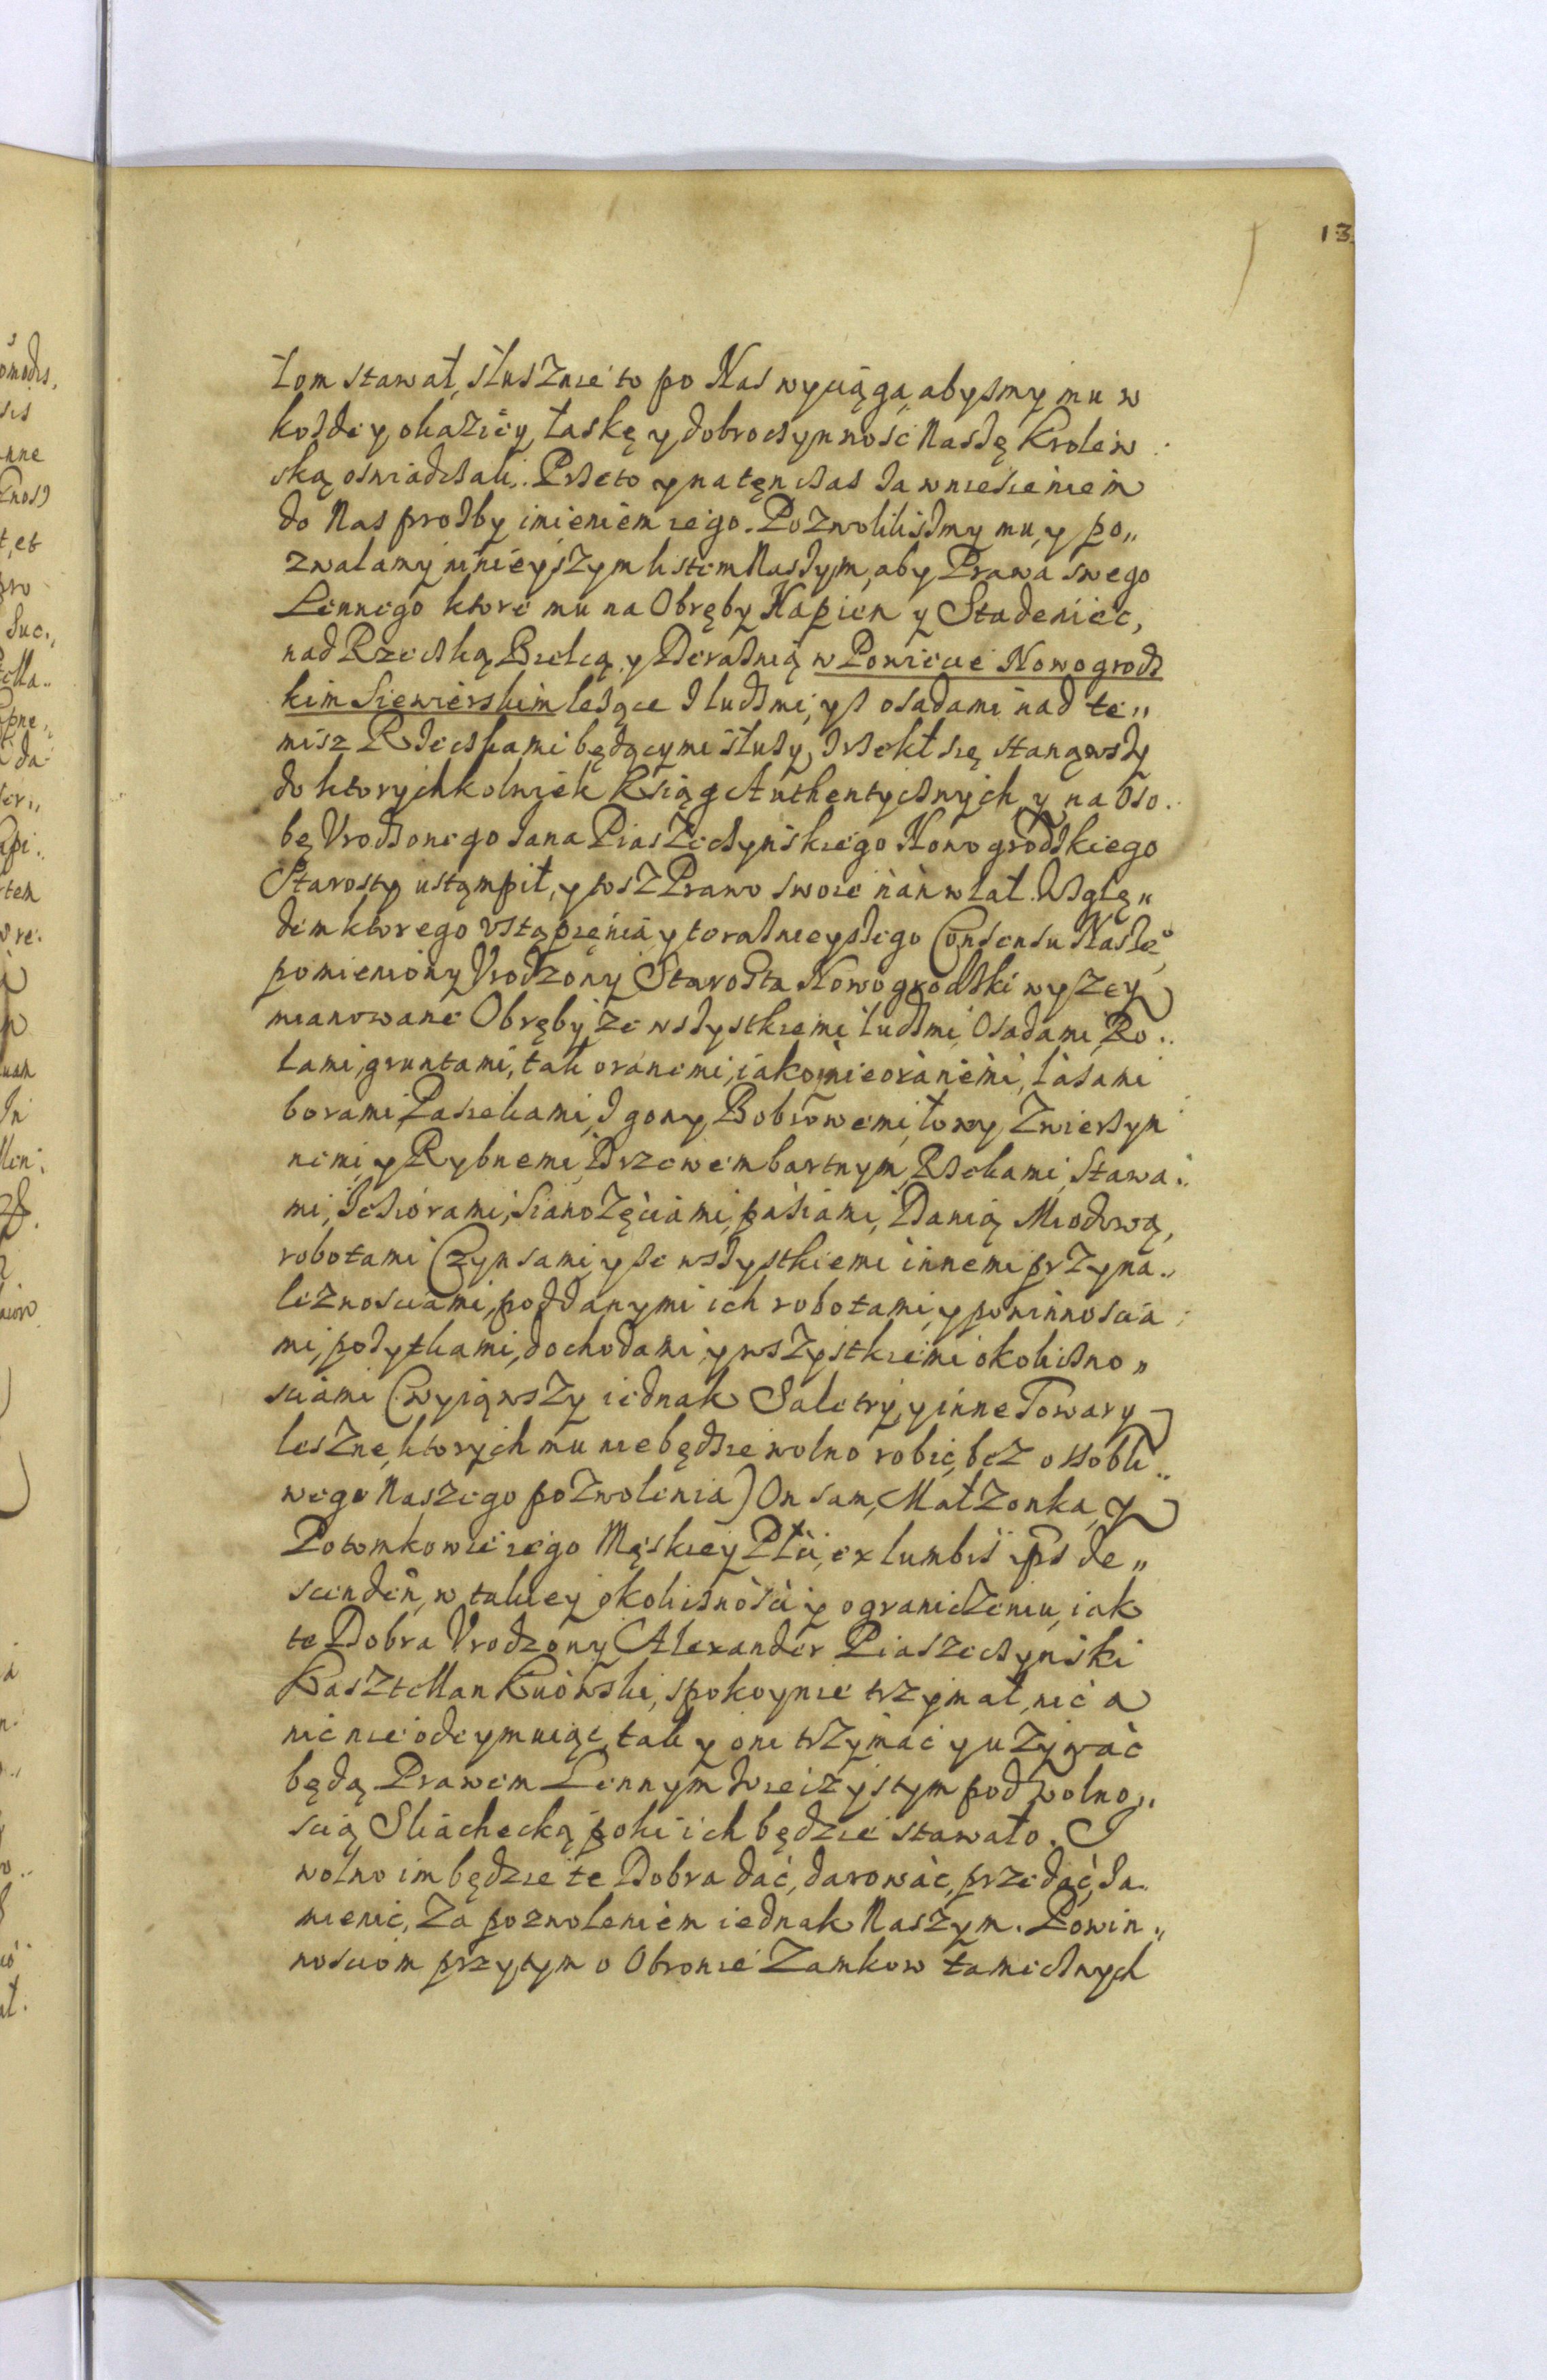 13
łom stawał, słusznie to po Nas wyciąga, abysmy mu w
kozdey okaziey, łaskę y dobroczynnosc Naszę Krolew
ską oswiadczali. Przeto y na tęn czas za wniesieniem
do Nas prozby imieniem iego. Pozwolilismy mu, y po„
zwalamy ninieyszym listem Naszym, aby Prawa swego
Lennego ktore mu na Obręby Kapien y Stadeniec,
nad Rzeczką Bielcą y Deraznią w Powiecie Nowogrodz
kim Siewierskim lezące z ludzmi, y z osadami nad te„
misz Rzeczkami będącymi słuzy, zrzekł się stanąwszy
do ktorychkolwiek Ksiąg Authentycznych y na Oso..
bę Vrodzonego Jana Piaszeczynskiego Nowogrodzkiego
Starosty ustąmpił, y wsz Prawo swoie nan wlał. Wzglę„
dem ktorego vstąpięnia y teraznieyszego Consensu Naszeo
pomieniony Vrodzony Starosta Nowogrodzki wyzey
mianowane Obręby ze wszystkiemi ludzmi, Osadami, Ro..
lami, gruntami, tak oranemi, iako nieoranemi, lasami
borami Pasiekami, Zgony Bobrowemi, łowy Zwierzyn
nemi y Rybnemi, Drzewem bartnym, Rzekami, Stawa..
mi, Jeziorami, Sianozęciami, pasiami, Danią Miodową,
robotami Czynsami y ze wszystkiemi innemi przyna..
leznosciami, poddanymi ich robotami, y powinnoscia
mi, pozytkami, dochodami, y wszystkiemi okoliczno„
sciami (wyiąwszy iednak Saletry, y inne Towary
leszne, ktorych mu niebędzie wolno robic, bez ossobli..
wego Naszego pozwolenia) On sam, Małzonka, y
Potomkowie iego Męskiey Płci, ex lumbis ips de„
scenden, w takiey okolicznosci y ograniczeniu, iak
te Dobra Vrodzony Alexander Piaszeczynski
Kasztellan Kiiowski, spokoynie trzymał, nic a
nic nie odeymuiąc, tak y oni trzymac y uzywac
będą Prawem Lennym Wieczystym pod wolno„
scią Sliachecką poki ich będzie stawało. I
wolno im będzie te Dobra dac, darowac, przedac, za..
mienic, za pozwoleniem iednak Naszym. Powin„
nosciom przytym o Obronie Zamkow tamecznych